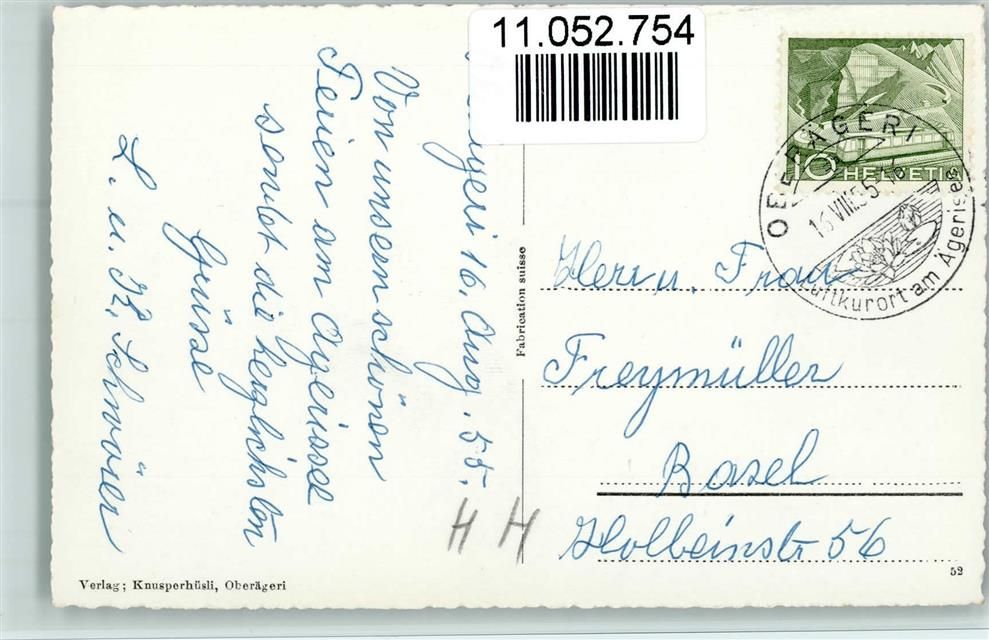 11.052.754
10 HELVETIA
OBERÄGERI
16.VIII.55-16
Luftkurort am Ägerisee
16. Aug. 55.
Von unsern schönen
Ferien am Ägerisee
sendet die herzlichsten
Grüsse
L. u. K. Schwüer
Fabrication suisse
Herr u. Frau
Freymüller
Basel
Holbeinstr 56
H H
Verlag; Knusperhüsli, Oberägeri
52